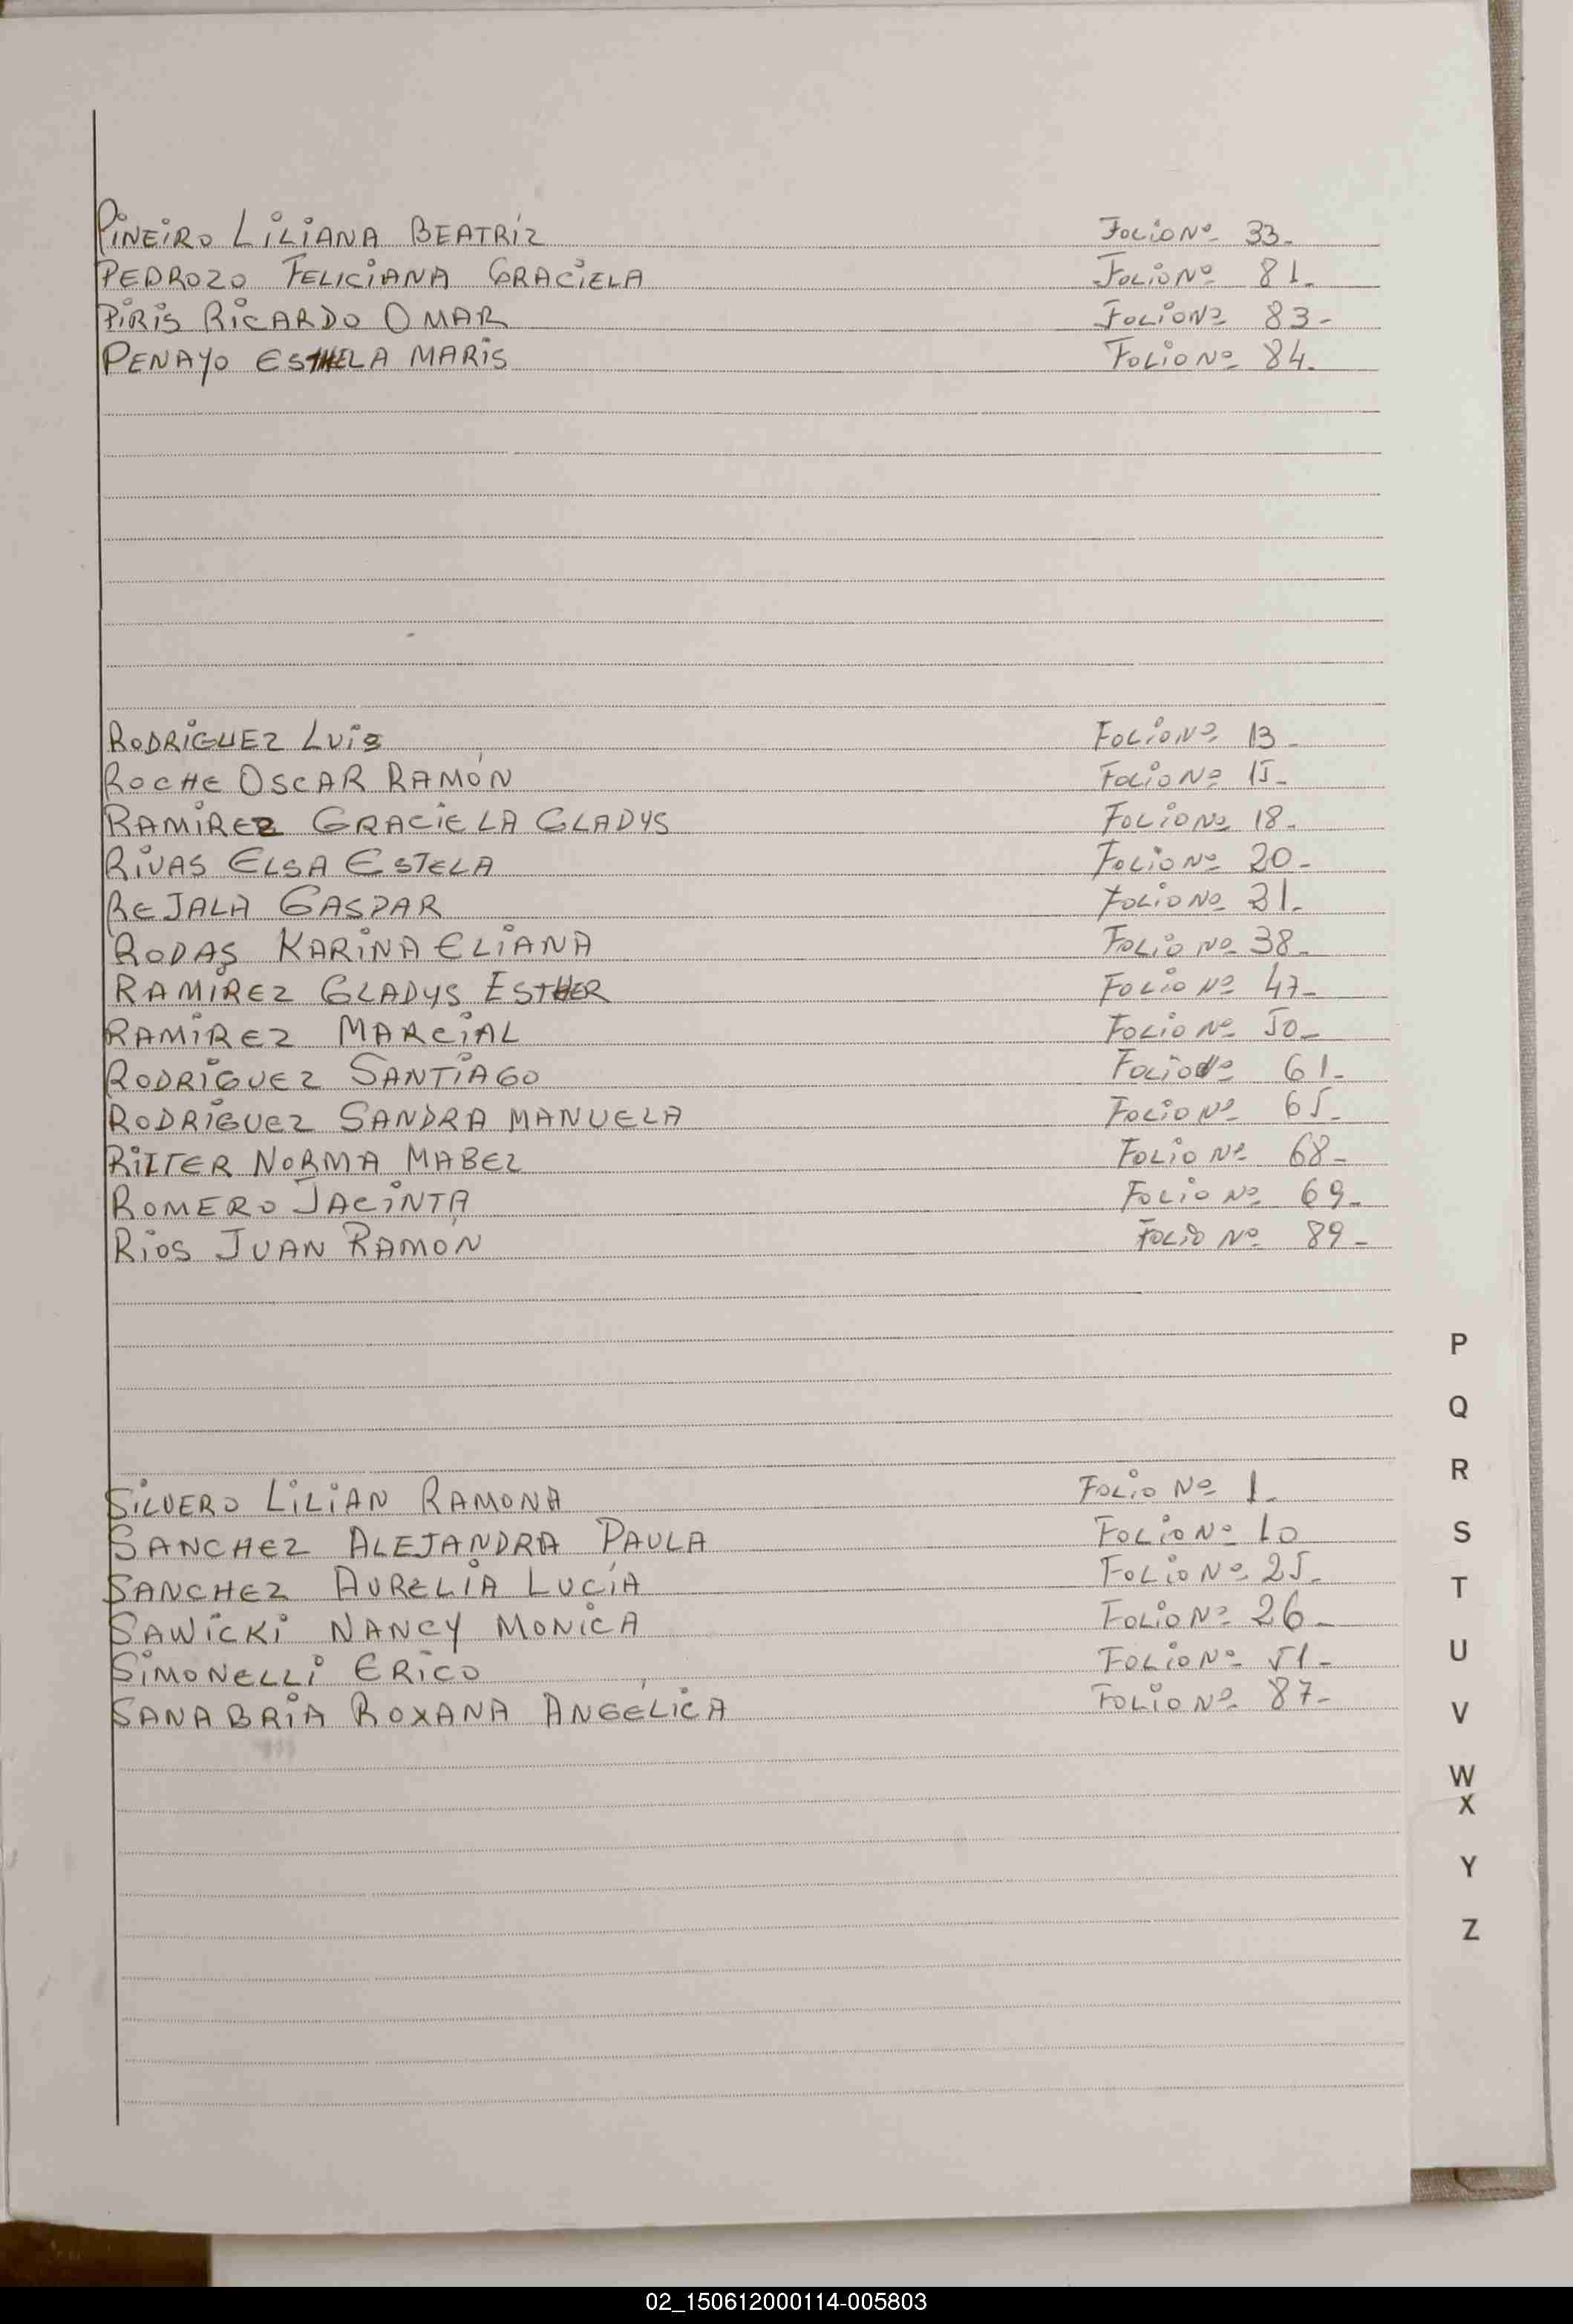 PiNEiRO LiLiANA BEATRíZ FOLIO Nº 33.
PEDROZO FELICIANA GRACIELA FOLIO Nº 81.
PIRIS RICARDO OMAR FOLIO Nº 83-
PENAYO ESTHELA MARIS FOLIO Nº 84.
RODRIGUEZ LUIS FOLIO Nº 13-
ROCHE OSCAR RAMÓN FOLIO Nº 15-
RAMIREZ GRACIELA GLADYS FOLIO Nº 18-
RIVAS ELSA ESTELA FOLIO Nº 20-
REJALA GASPAR FOLIO Nº 31.
RODAS KARINA ELIANA FOLIO Nº 38-
RAMÍREZ GLADYS ESTHER FOLIO Nº 47-
RAMIREZ MARCIAL FOLIO Nº 50-
RODRIGUEZ SANTIAGO FOLIO Nº 61-
RODRIGUEZ SANDRA MANUELA FOLIO Nº 65-
RITTER NORMA MABEL FOLIO Nº 68-
ROMERO JACINTA FOLIO Nº 69-
RIOS JUAN RAMÓN FOLIO Nº 89-
P
Q
R
SILVERO LILIAN RAMONA FOLIO Nº 1.
SANCHEZ ALEJANDRA PAULA FOLIO Nº 10
S
SANCHEZ AURELIA LUCÍA FOLIO Nº 25-
T
SAWICKI NANCY MONICA FOLIO Nº 26-
SIMONELLI ERICO FOLIO Nº 51-
U
SANABRIA ROXANA ANGÉLICA FOLIO Nº 87-
V
W
X
Y
Z
02_150612000114-005803